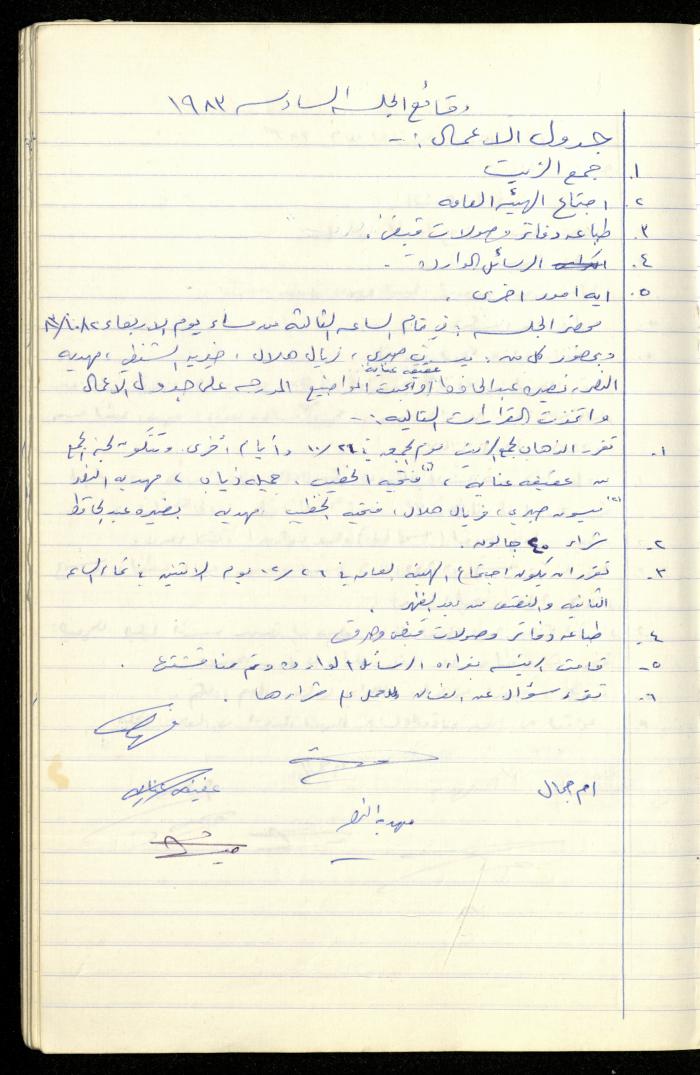 وقائع الجلسة السادسه ١٩٨٣
جدول الاعمال : -
١. جمع الزيت
٢. اجتماع الهيئه العامه
٣. طباعه دفاتر وصولات قبض .
٤. الرسائل الوارده -
٥. ايه امور اخرى .
محضر الجلسه : في تمام الساعه الثالثة من مساء يوم الاربعاء
وبحضور كل من : ميسون صبري ، فريال هلال ، خيريه الشنطي ، مهديه
عفيفه عنايه
النمر ، نصيره عبد الحافظ المواضيع المدرجه على جدول الاعمال
واتخذت القرارات التاليه : -
١. تقرر الذهاب لجمع الزيت يوم الجمعه في ٢٦/١٠ وأيام أخرى وتتكون لجنة الجمع
من عفيفه عنايه ، فتحيه الخطيب ، جميله ذياب ، مهديه النمر
ميسون صبري ، فريال هلال ، فتحيه الخطيب مهديه نصيره عبد الحافظ
٢- شراء ٤٠ جالون .
٣- تقرر ان يكون اجتماع الهيئه العامه في ٢٦/١٢ يوم الاثنين في تمام الساعه
الثانيه والنصف من بعد الظهر .
٤- طباعه دفاتر وصولات قبض وصرف
٥- قامت الرئيسه بقراءه الرسائل الوارده وتم مناقشتها .
٦- تقرر سؤال عن والعمل على شرارها .
ام جمال
مهديه النمر
عفيفه عنايه